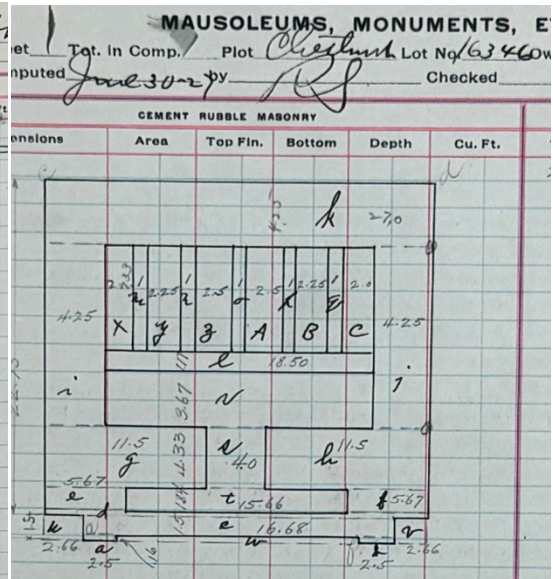 MAUSOLEUMS, MONUMENTS, E
et 1 Tot. in Comp. 1 Plot Chestnut Lot No. 16346
mputed June 30-27 by RS Checked
CEMENT RUBBLE MASONRY
ensions Area Top Fin. Bottom Depth Cu. Ft.
c d
k 27.0
4.25 2.25 2.5 2.5 2.25 2.0 4.25
x y z A B C
l 18.50
i 3.67 v j
11.5 s 11.5
g 4.33 4.0 h
5.67
e t 15.66 f 5.67
d
u e 16.68 v
2.66 a w 2.66
2.5 2.5